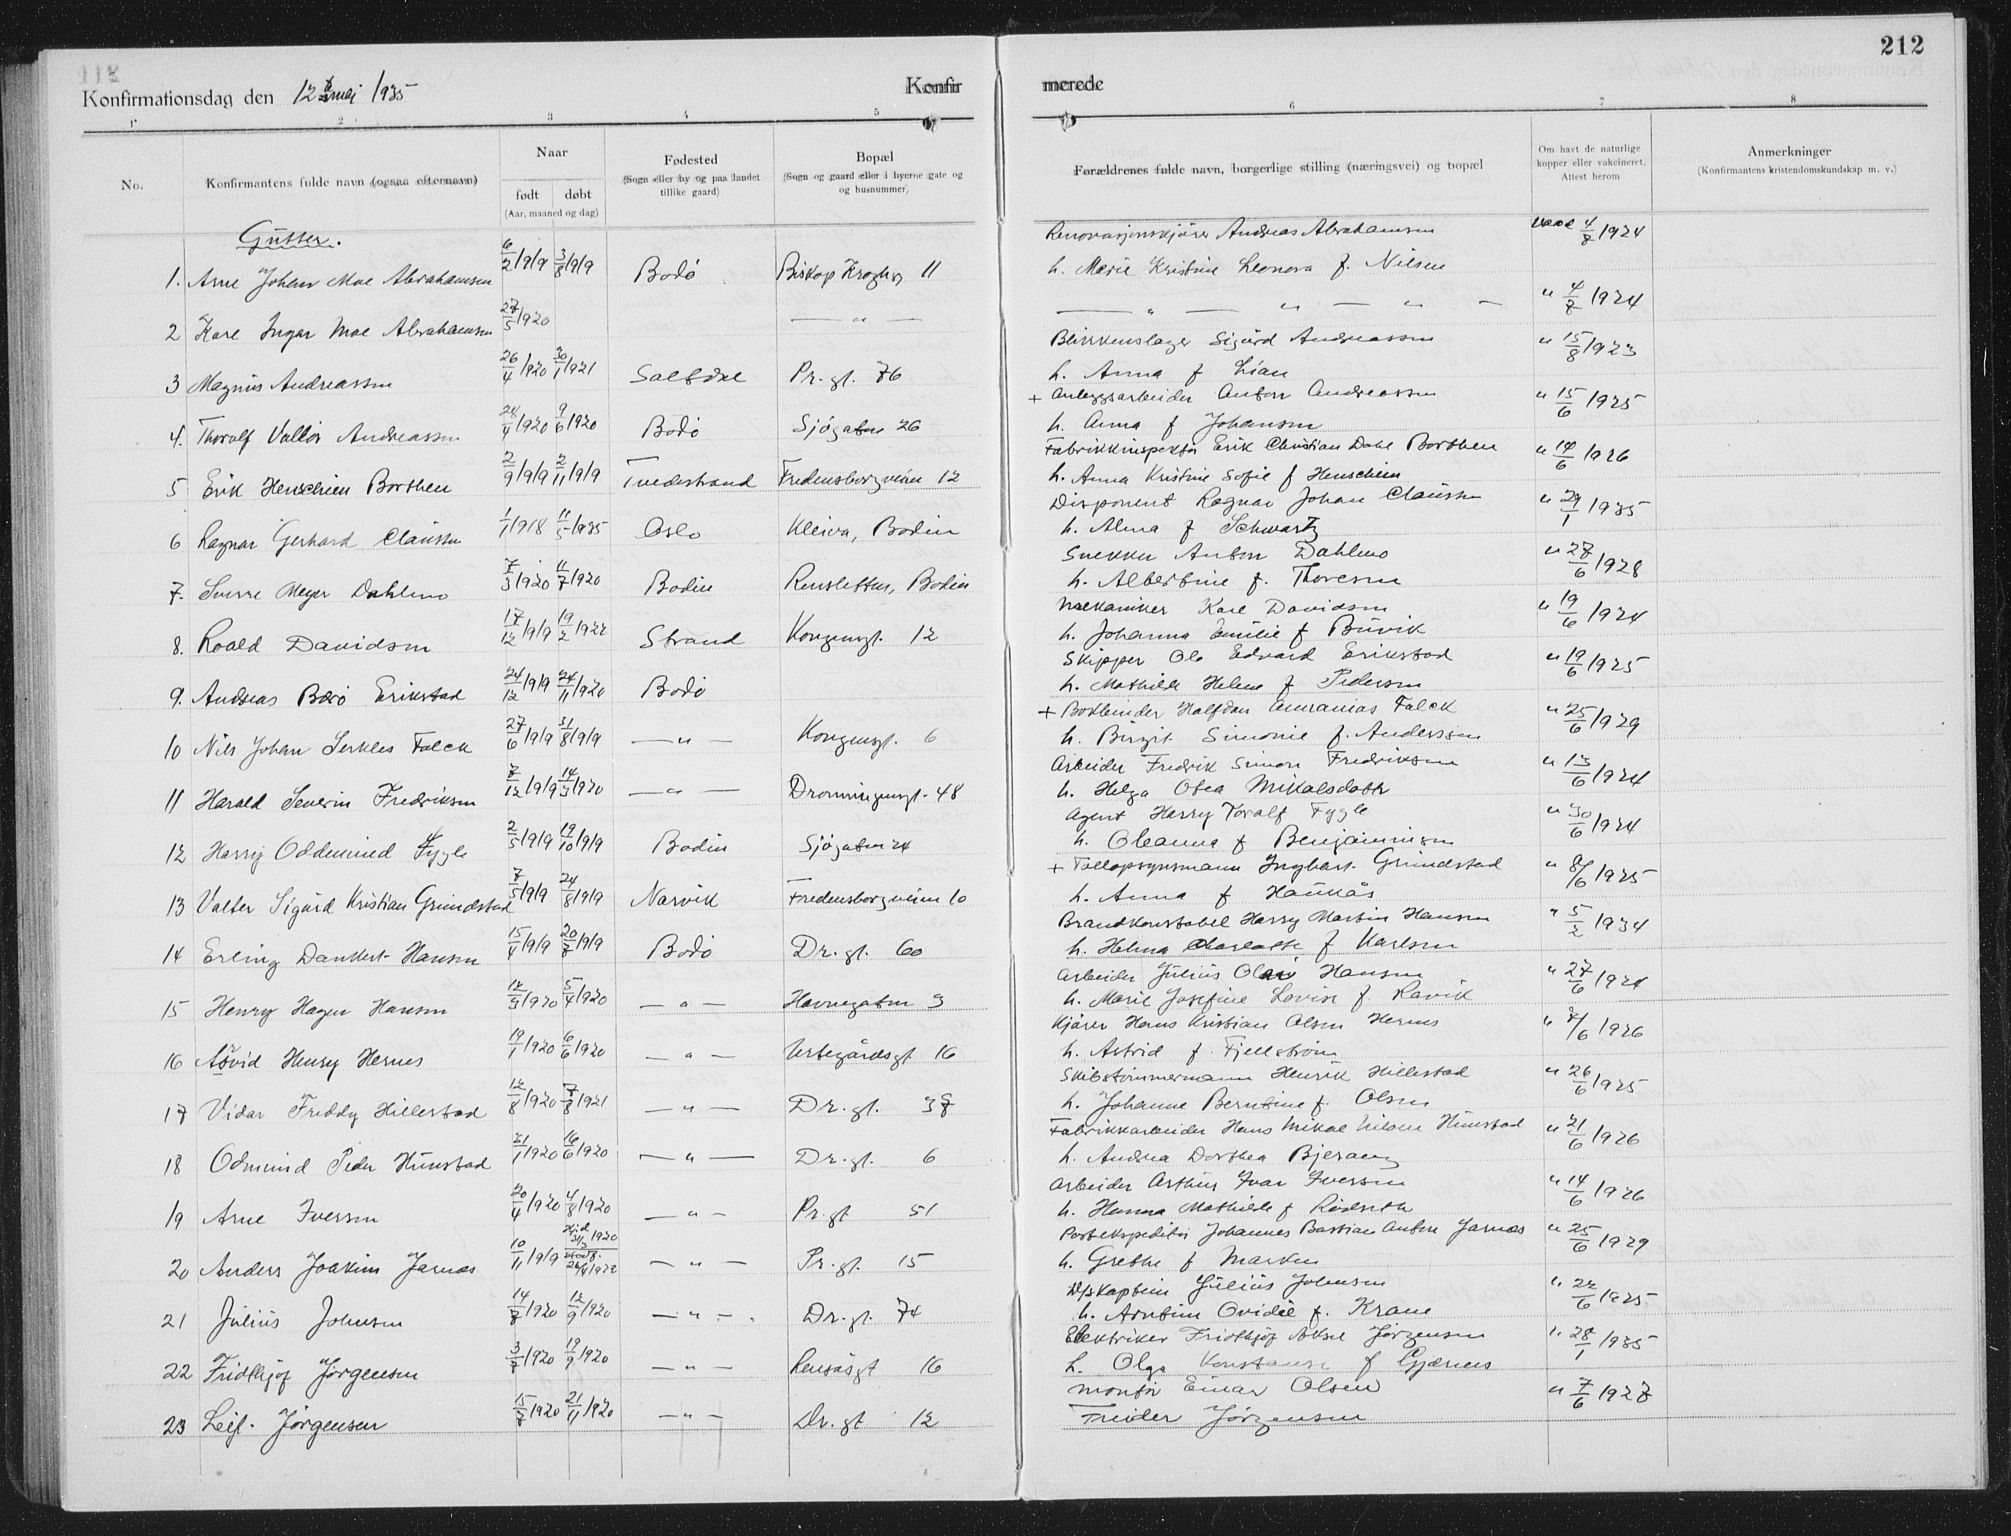 212
Konfirmationsdag den 12 mai 1935 Konfir merede
1 2 3 4 5 6 7 8
No. Konfirmantens fulde navn (ogsaa efternavn) Naar født døbt (Aar, maaned og dag) Fødested (Sogn eller by og paa landet tillike gaard) Bopæl (Sogn og gaard eller i byerne gate og og husnummer) Forældrenes fulde navn, borgerlige stilling (næringsvei) og bopæl Om havt de naturlige kopper eller vakcineret, Attest herom Anmerkninger (Konfirmantens kristendomskundskap m. v.)
Gutter.
Renovasjonskjører Andreas Abrahamsen 4/8 1924
1. Arne Johan Moe Abrahamsen 6/2 1919 3/8 1919 Bodø Biskop Kroghsg 11 h. Marie Kristine Leonora f. Nilsen
2 Kare Ingar Moe Abrahamsen 27/5 1920 — " — — " — " — " 4/8 1924
Blikkenslager Sigurd Andreassen " 15/8 1923
3 Magnus Andreassen 26/4 1920 30/1 1921 Saltdal Pr. gt. 76 h. Anna f Lian
+ Anleggsarbeider Anton Andreassen " 15/6 1925
4. Thoralf Andreassen 24/4 1920 9/6 1920 Bodø Sjøgaten 26 h. Anna f Johansen
Fabrikkinspektør Erik Christian Dahl Borthen " 14/6 1926
5 Erik Henschien Borthen 2/9 1919 2/11 1919 Tvedestrand Fredensborgveien 12 h. Anna Kristine Sofie f Henschien
Disponent Ragnar Johan Clausen " 29/1 1935
6 Ragnar Gerhard Clausen 1/1 1918 11/5 1935 Oslo Kleiva, Bodin h. Alma f Schwartz
Snekker Anton Dahlmo " 27/6 1928
7. Sverre Meyer Dahlmo 7/3 1920 11/7 1920 Bodin Rensletten, Bodin h. Albertine f. Thoresen
Mekaniker Karl Davidsen " 19/6 1924
8. Roald Davidsen 17/12 1919 19/2 1922 Strand Kongensgt. 12 h. Johanna Emilie f Buvik
Skipper Ole Edvard Erikstad " 19/6 1925
9. Andreas Erikstad 24/12 1919 24/11 1920 Bodø h. Mathilde Helene f Pedersen
+ Bokbinder Halfdan Falck " 25/6 1929
10 Nils Johan Falck 27/6 1919 31/8 1919 — " — Kongensgt. 6 h. Birgit Simonie f. Anderssen
Arbeider Fredrik Simon Fredriksen " 13/6 1924
11 Harald Severin Fredriksen 7/12 1919 14/3 1920 — " — Dronningensgt. 48 h. Helga Otea Mikalsdatter
Agent Harry Toralf Fygle " 30/6 1924
12 Harry Oddmund Fygle 2/5 1919 19/10 1919 Bodin Sjøgaten 24 h. Oleanna f Benjaminsen
+ Tollopsynsmann Ingbart Grundstad " 8/6 1925
13 Valter Sigurd Kristian Grundstad 7/5 1919 24/8 1919 Narvik Fredensborgveien 10 h. Anna f Haukås
Brandkonstabel Harry Martin Hansen " 5/2 1934
14 Erling Dankert Hansen 15/4 1919 20/7 1919 Bodø Dr. gt. 60 h. Helma Charlotte f Karlsen
Arbeider Julius Olai Hansen " 27/6 1924
15 Henry Hagen Hansen 5/4 1920 — " — Havnegaten 3 h. Marie Josefine Lovise f. Ravik
Kjører Hans Kristian Olsen Hernes 1926
16 Arvid Henry Hernes 19/1 1920 6/6 1920 — " — Urtegårdsgt 16 h. Astrid f. Fjellstrøm
Skibstømmermann Henrik Hillestad " 26/6 1925
17 Vidar Freddy Hillestad 12/8 1920 7/8 1921 — " — Dr. gt. 37 h. Johanne Berntine f. Olsen
Fabrikkarbeider Hans Mikal Nilsen Hunstad " 21/6 1926
18 Odmund Peder Hunstad 21/1 1920 16/6 1920 — " — Dr. gt. 6 h. Andrea Dorthea Bjerang
Arbeider Arthur Ivar Iversen " 14/6 1926
19 Arne Iversen 20/4 1920 4/8 1920 — " — Pr. gt 51 h. Hanna Mathilde f
Postekspeditør Johannes Bastian Anton Jarnæs " 25/6 1929
20 Anders Joakim Jarnæs 10/11 1919 Hjd 31/3 1920 — " — Pr. gt. 15 h. Grethe f Marken
D/skaptein Julius Johnsen " 22/6 1925
21 Julius Johnsen 14/7 1920 12/9 1920 — " — Dr. gt. 74 h. Arntine Ovidie f. Krane
Elektriker Fridthjof Aksel Jørgensen " 28/1 1935
22 Fridthjof Jørgensen 3/7 1920 19/9 1920 — " — Rensåsgt 16 h. Olga Konstanse f Gjærnes
Montør Einar Olsen " 7/6 1927
23 Leif. Jørgensen 15/8 1920 21/11 1920 — " — Dr. gt 12 Jørgensen